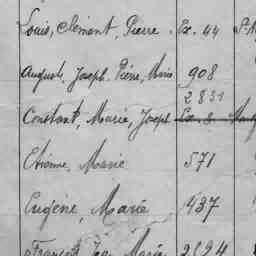 Louis, Clément, Pierre Ex. 44
Auguste, Joseph, Pierre, Marie 908
2831
Constant, Marie, Joseph Ex. 8
Etienne, Marie 571
Eugène, Marie 1437
François, Jean, Marie 2624